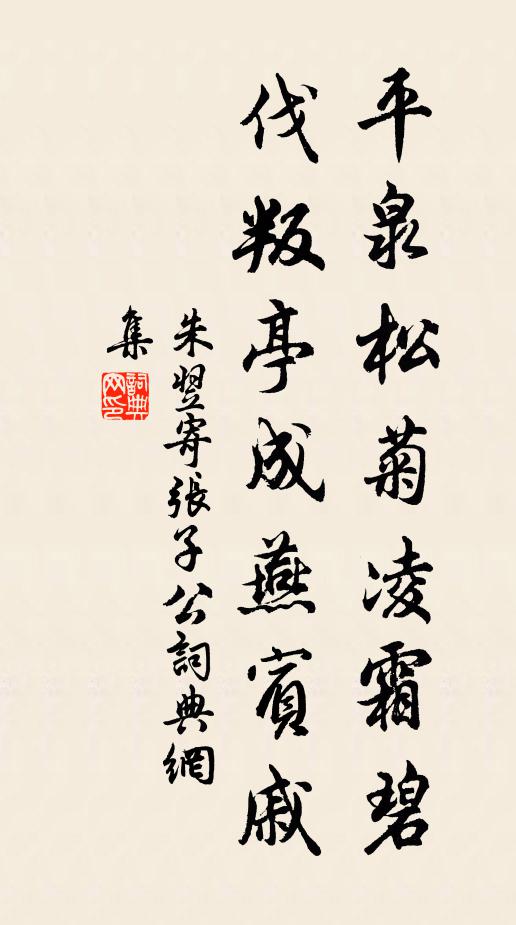 平泉松菊凌霜碧
伐叛亭成燕賓戚
朱翌寄張子公詞典網
集
詞典
网印